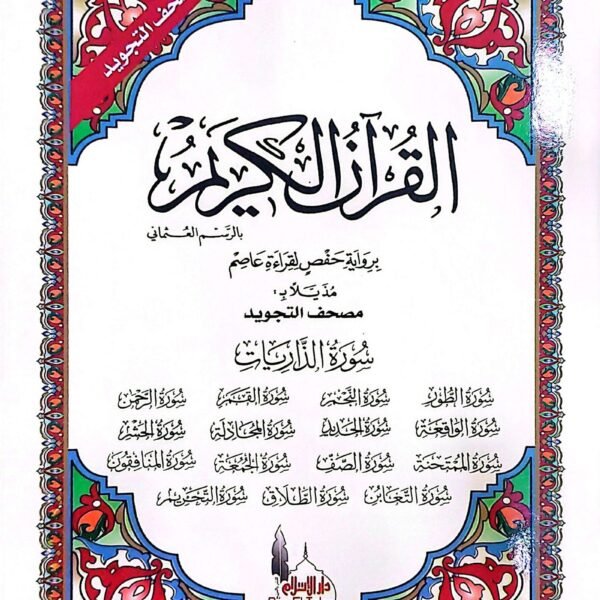 حف التجويد
القُرآنُ الكَرِيَمُ
بالرّسم العُثماني
برِوَايَةِ حَفْصٍ لِقِرَاءَةِ عَاصِم
مُذَيَلَا بـ :
مصحف التجويد
سُورَةُ الذَّارِيَات
سُورَةُ الطُّور سُورَةُ النَّجْم سُورَةُ القَمَر سُورَةُ الرَّحمٰن
سُورَةُ الوَاقِعَة سُورَةُ الحَديد سُورَةُ المُجَادلَة سُورَةُ الحَشر
سُورَةُ المُمْتَحنَة سُورَةُ الصَّف سُورَةُ الجُمُعَة سُورَةُ المنَافِقُون
سُورَةُ التَّغَابُن سُورَةُ الطَّلَاق سُورَةُ التَّحْريم
دار الإسلام